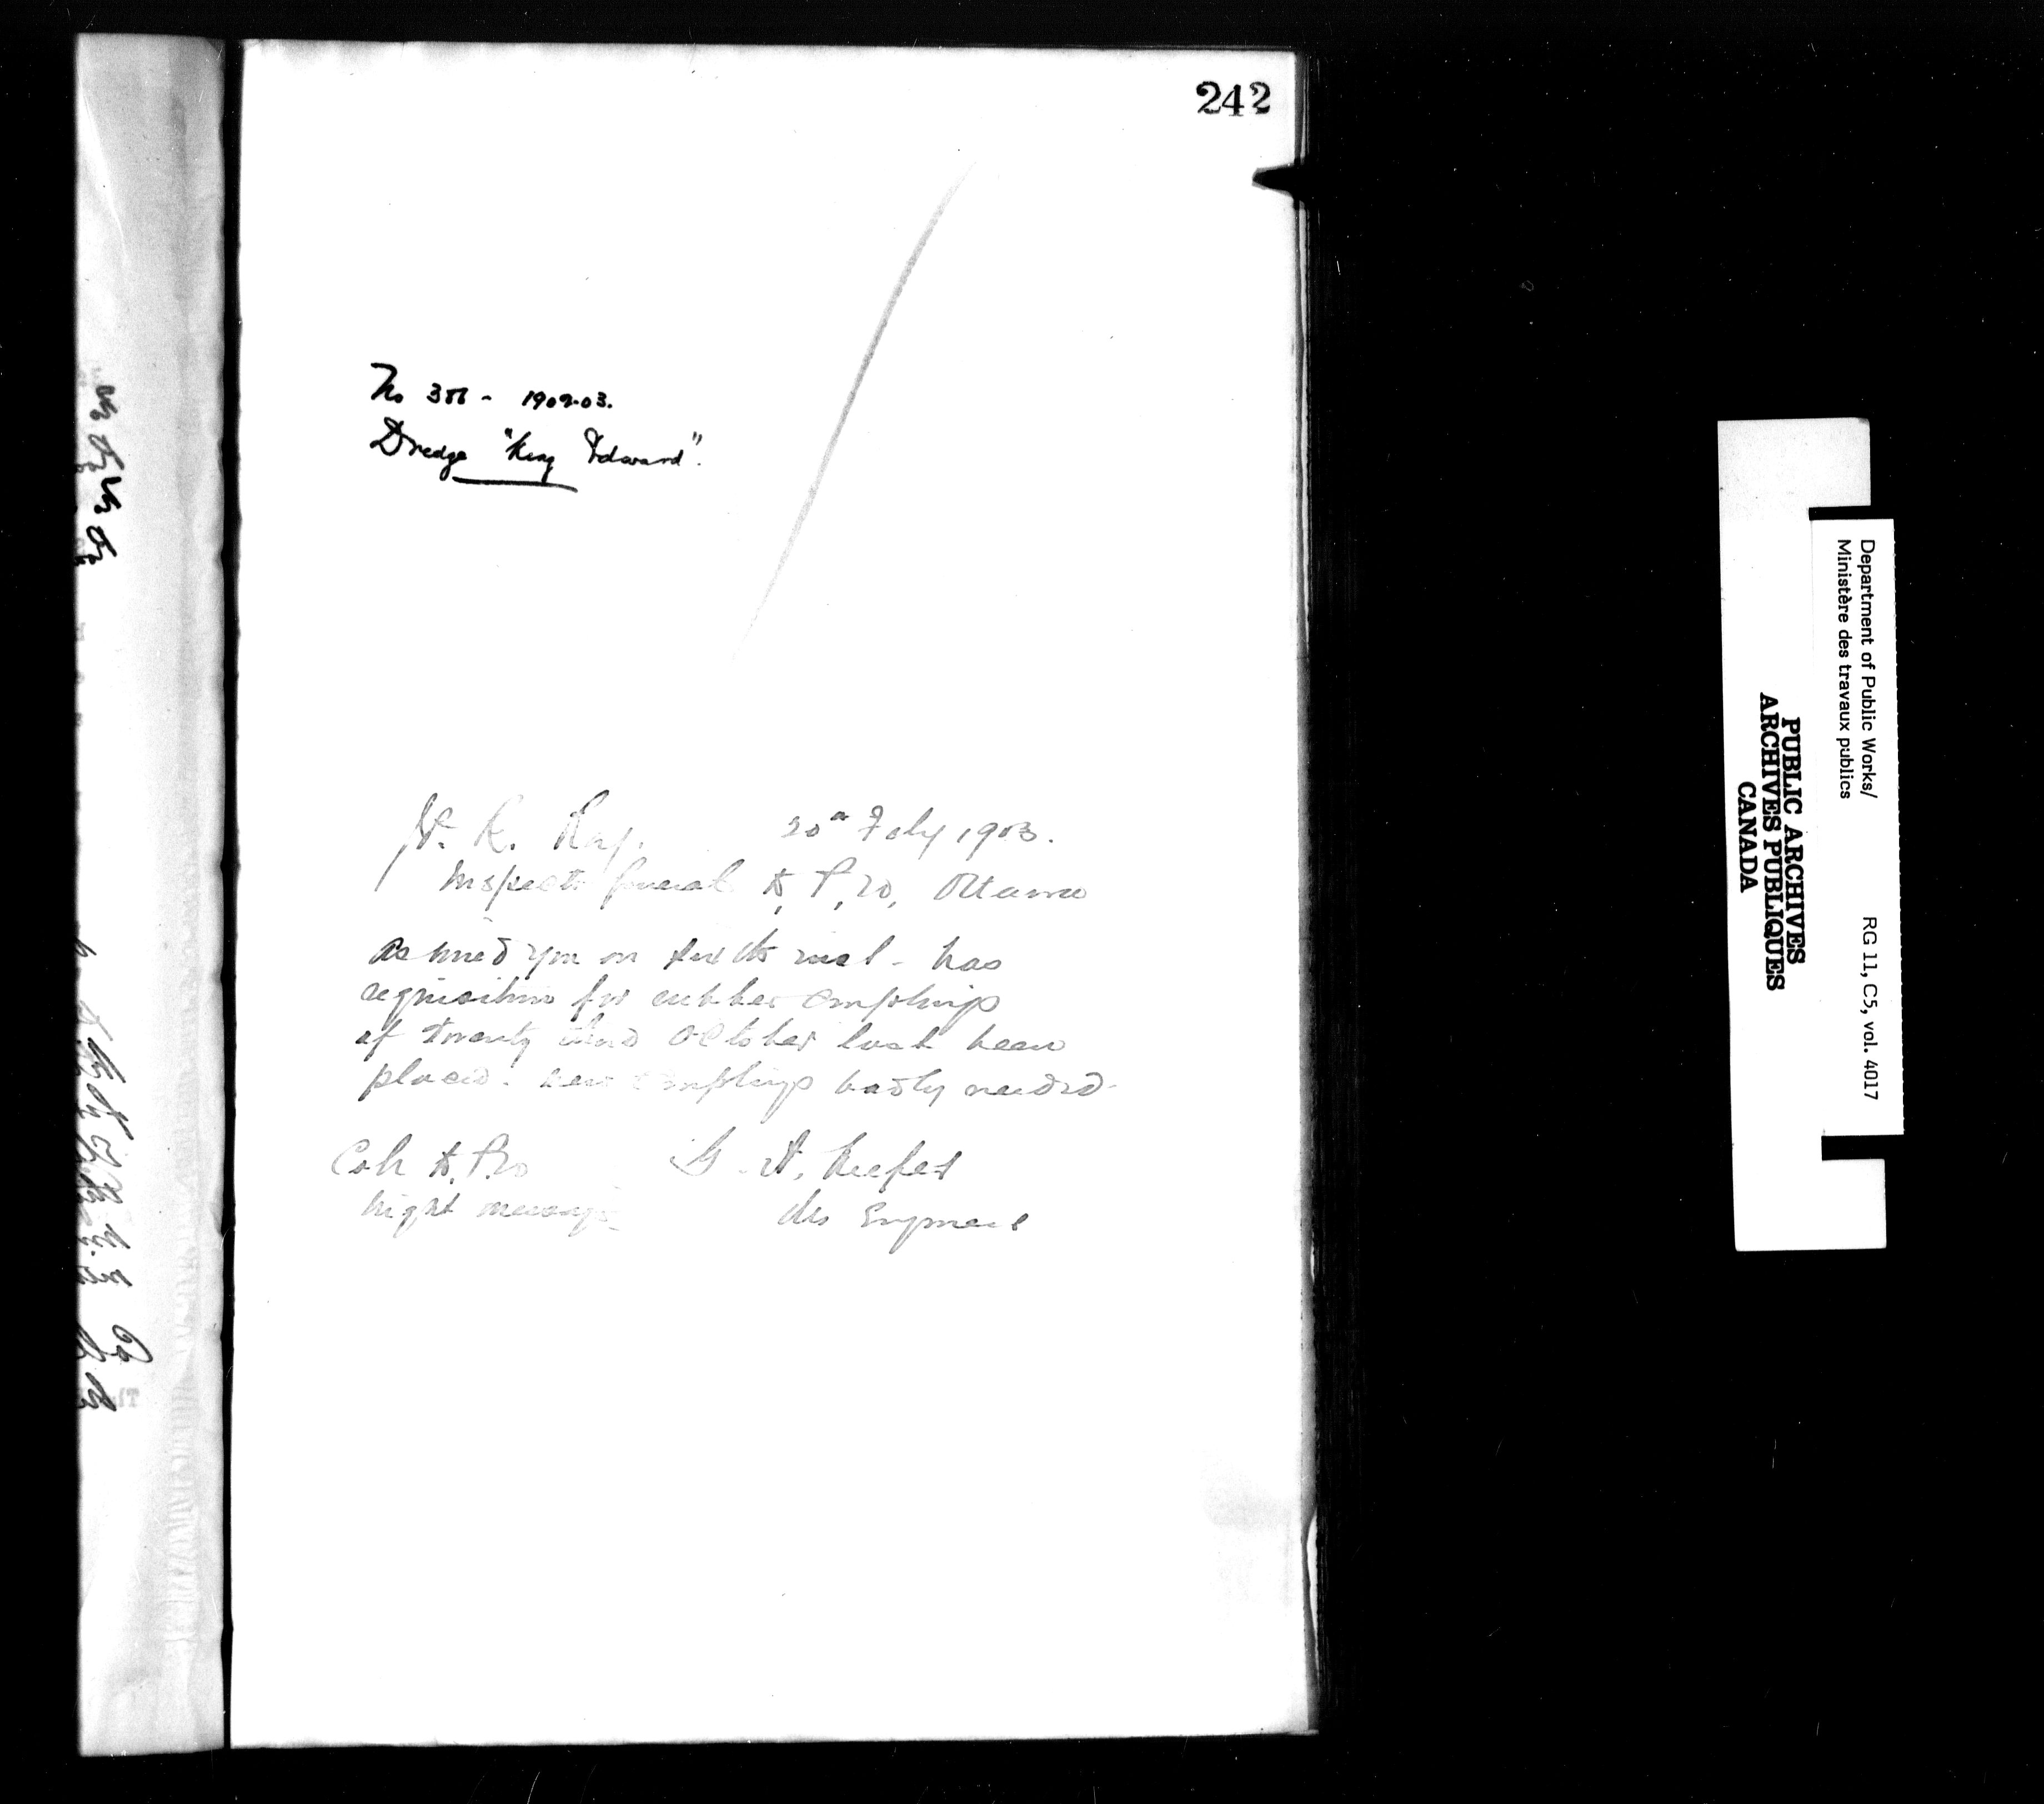 242
No 356 - 1902-03.
Dredge "King Edward".
20th Feby 1903.
Inspector General D, P, W, Ottawa
As wired you on sixth inst - has
requisition for rubber couplings
of twenty third October last been
placed. new couplings badly needed.
Coll D. P. W G. A. Keefer
night message Res Engineer
Department of Public Works/
Ministère des travaux publics
RG 11, C5, vol. 4017
PUBLIC ARCHIVES
ARCHIVES PUBLIQUES
CANADA